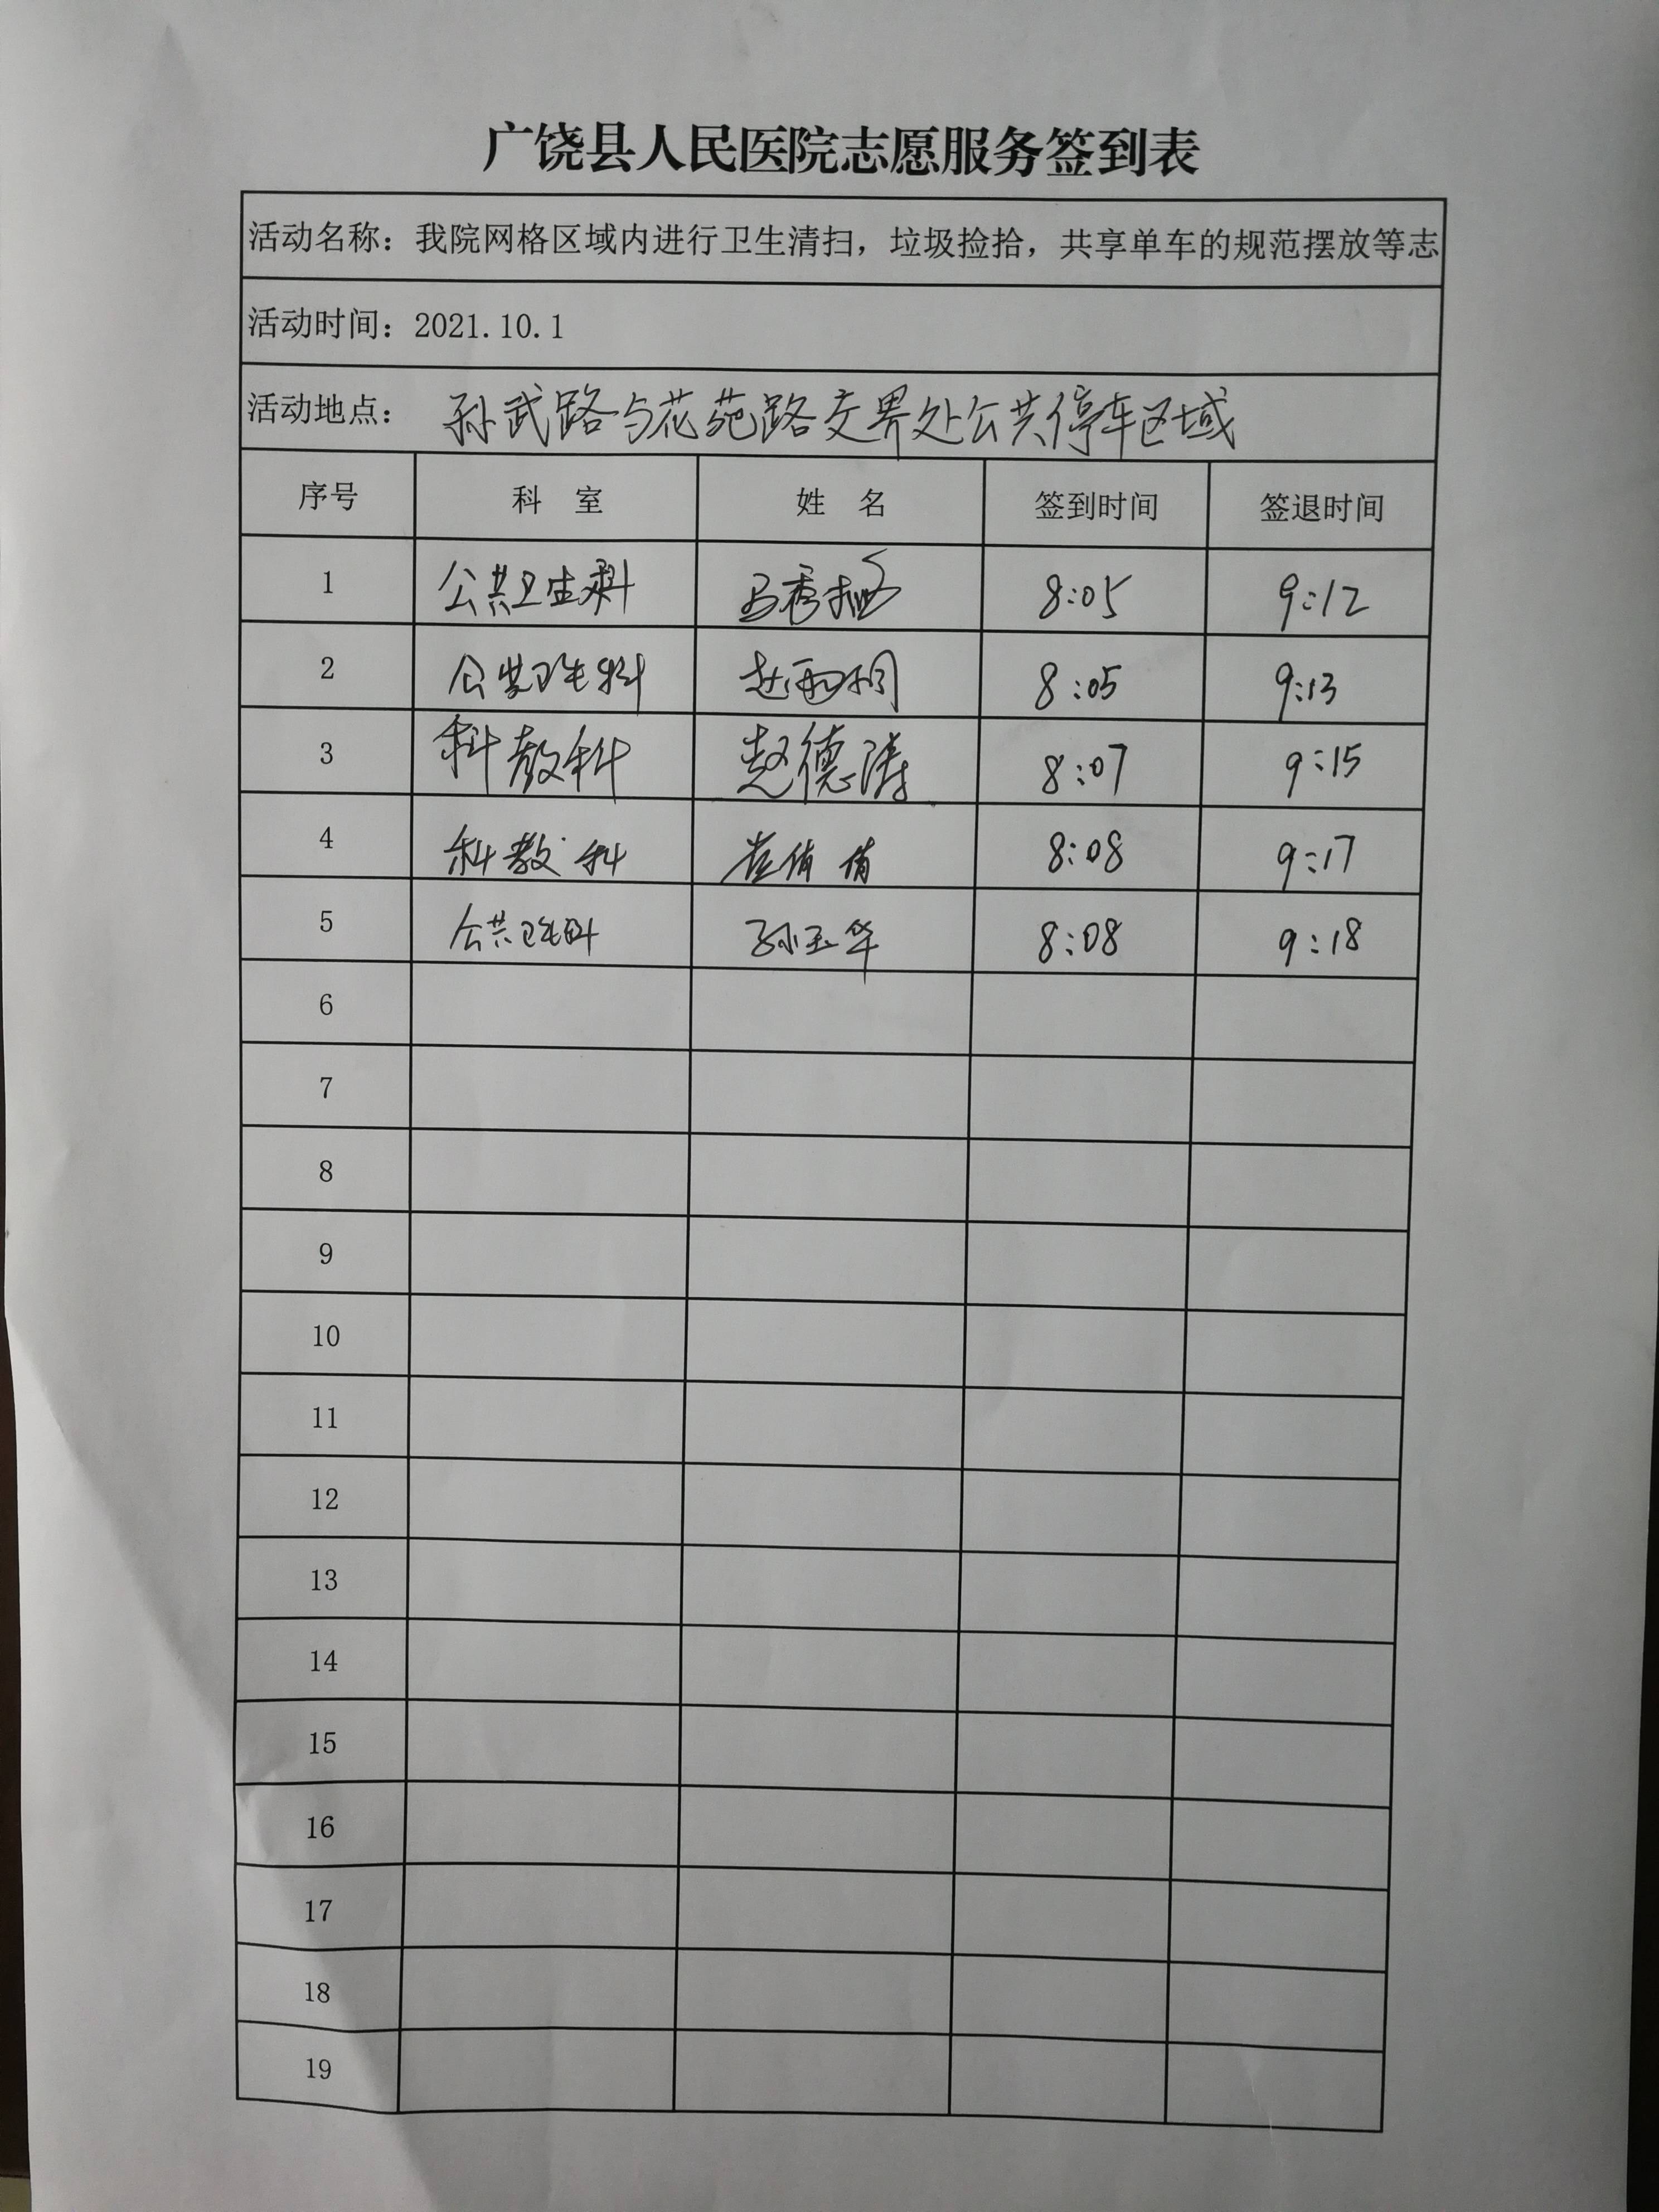 广饶县人民医院志愿服务签到表
活动名称：我院网格区域内进行卫生清扫，垃圾捡拾，共享单车的规范摆放等志
活动时间：2021.10.1
活动地点： 孙武路与花苑路交界处公共停车区域
序号 科 室 姓 名 签到时间 签退时间
1 公共卫生科 8:05 9:12
2 公共卫生科 赵雨桐 8:05 9:13
3 科教科 赵德涛 8:07 9:15
4 科教科 崔倩倩 8:08 9:17
5 公共卫生科 孙玉华 8:08 9:18
6
7
8
9
10
11
12
13
14
15
16
17
18
19